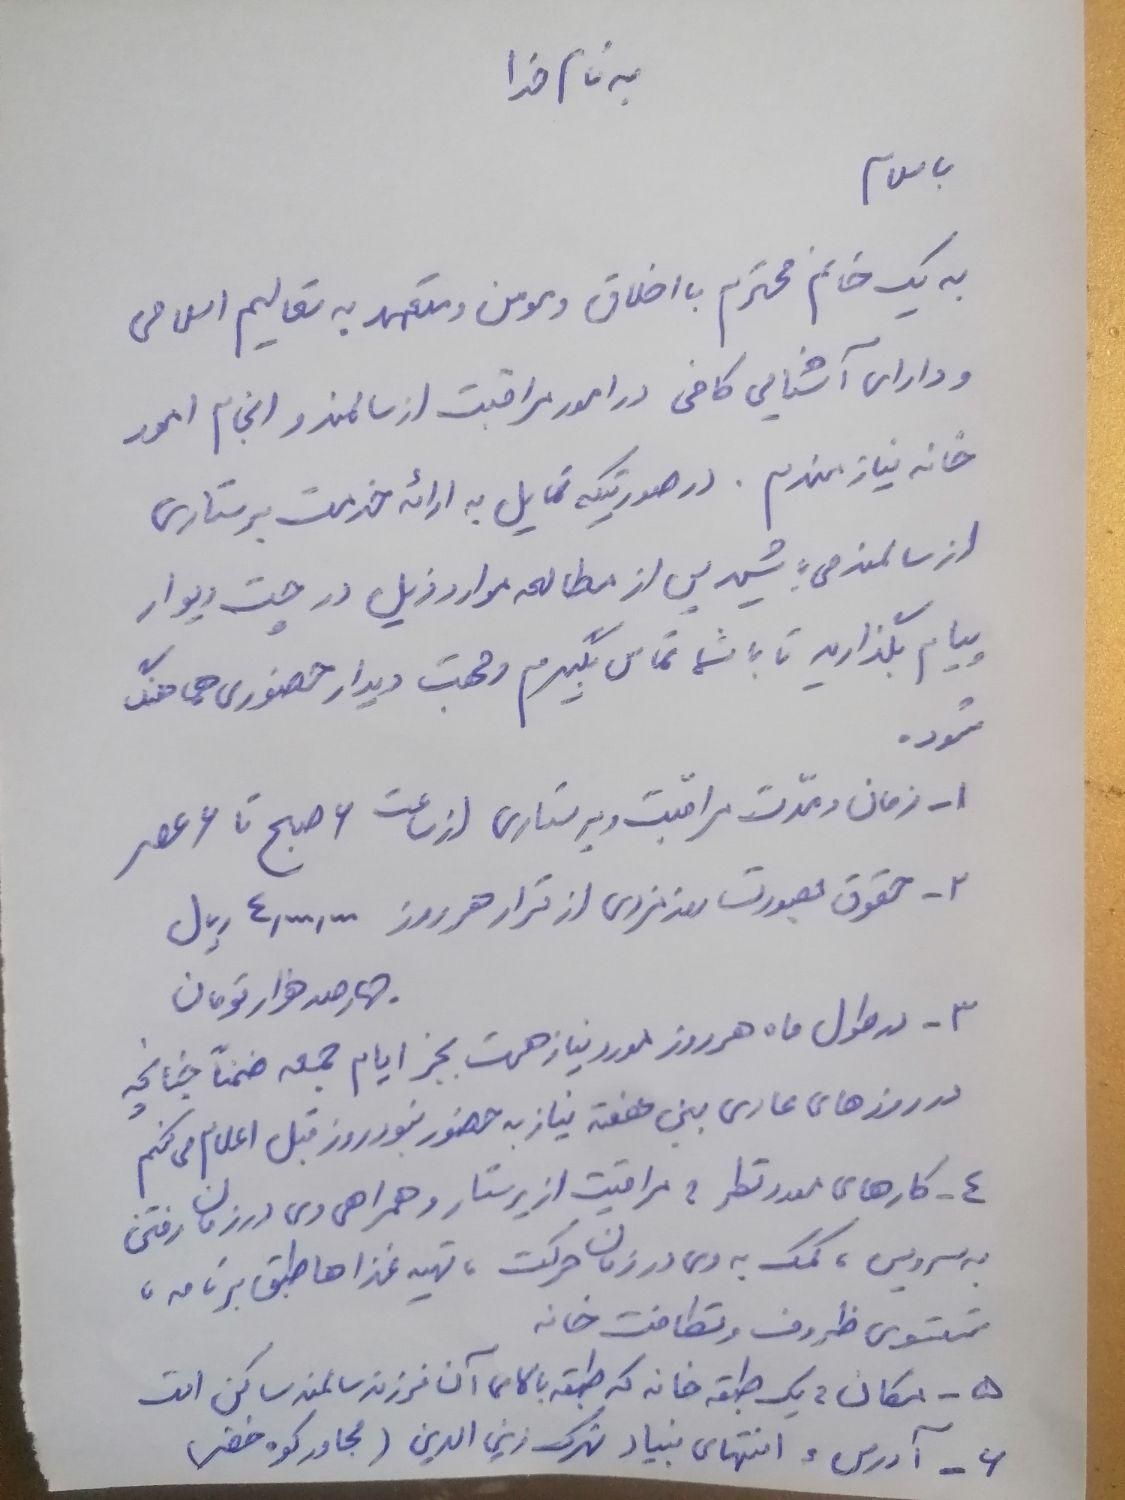 به نام خدا
با سلام
به یک خانم محترم با اخلاق و مومن و متعهد به تعالیم اسلامی
و دارای آشنایی کافی در امور مراقبت از سالمند و انجام امور
خانه نیازمندم . در صورتیکه تمایل به ارائه خدمت پرستاری
از سالمند می باشید پس از مطالعه موارد ذیل در چت دیوار
پیام بگذارید تا با شما تماس بگیرم و جهت دیدار حضوری هماهنگ
شود .
۱- زمان و مدّت مراقبت و پرستاری از ساعت ۶ صبح تا ۶ عصر
۲- حقوق بصورت روزمزدی از قرار هر روز ٤,۰۰۰,۰۰۰ ریال
چهارصد هزار تومان
۳- در طول ماه هر روز مورد نیاز هست بجز ایام جمعه ضمناً چنانچه
در روزهای عادی بین هفته نیاز به حضور نبود روز قبل اعلام می کنم
٤- کارهای مورد نظر : مراقبت از پرستار و همراهی وی در زمان رفتن
به سرویس ، کمک به وی در زمان حرکت ، تهیه غذاها طبق برنامه ،
شستشوی ظروف و نظافت خانه
۵- مکان : یک طبقه خانه که طبقه بالای آن فرزند سالمند ساکن است
۶- آدرس : انتهای بنیاد شهرک زین الدین (مجاور کوه خضر)